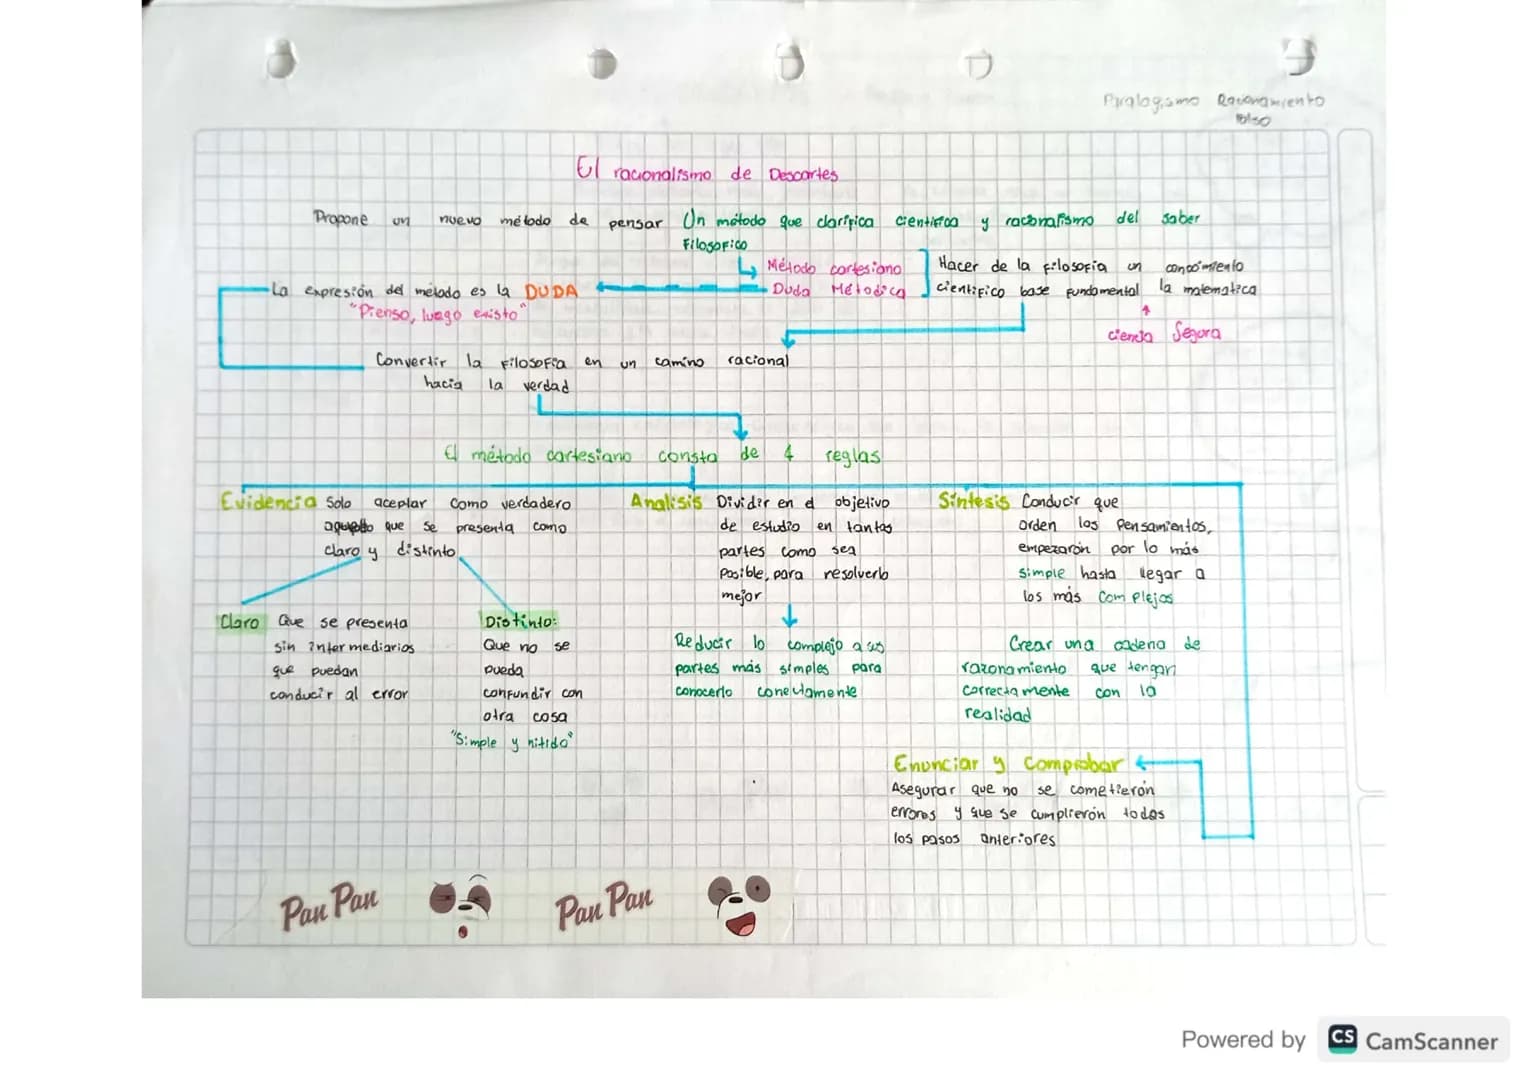 Paralogismo Razonamiento
falso
El racionalismo de Descartes
Propone un nuevo método de pensar Un método que clarifica cientifica y racionalismo del saber
Filosofico
Método cartesiano
Duda Métodica
Hacer de la filosofia un conocimiento
cientifico base fundamental la matematica
ciencia Segura
La expresión del método es la DUDA
"Pienso, luego existo"
Convertir la Filosofia en un camino racional
hacia la verdad
El método cartesiano consta de 4 reglas
Evidencia Solo aceptar como verdadero
aquello que se presenta como
claro y distinto
Claro Que se presenta
sin intermediarios
que puedan
conducir al error
Distinto:
Que no se
pueda
confundir con
otra cosa
"Simple y nitido"
Analisis Dividir en el objetivo
de estudio en tantas
partes como sea
Posible, para resolverlo
mejor
Reducir lo complejo a sus
partes más simples para
conocerlo
Síntesis Conducir que
orden los pensamientos,
empezarón por lo más
simple hasta llegar a
los más complejos
Crear una cadena de
razonamiento que tengan
correctamente con la
realidad
Enunciar y Comprobar
Asegurar que no se cometierón
errores y que se cumplierón todos
los pasos anteriores
Pan Pan
Pan Pan
Powered by CS CamScanner